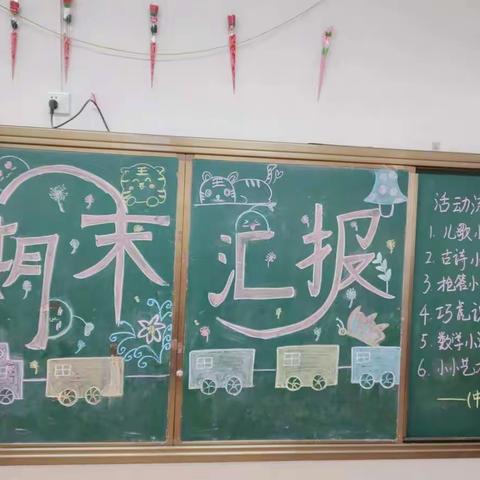 期末汇报
活动流
1. 儿歌小
2. 古诗小
3 抢答小
4. 巧虎
5. 数学小
6. 小小艺
——(中